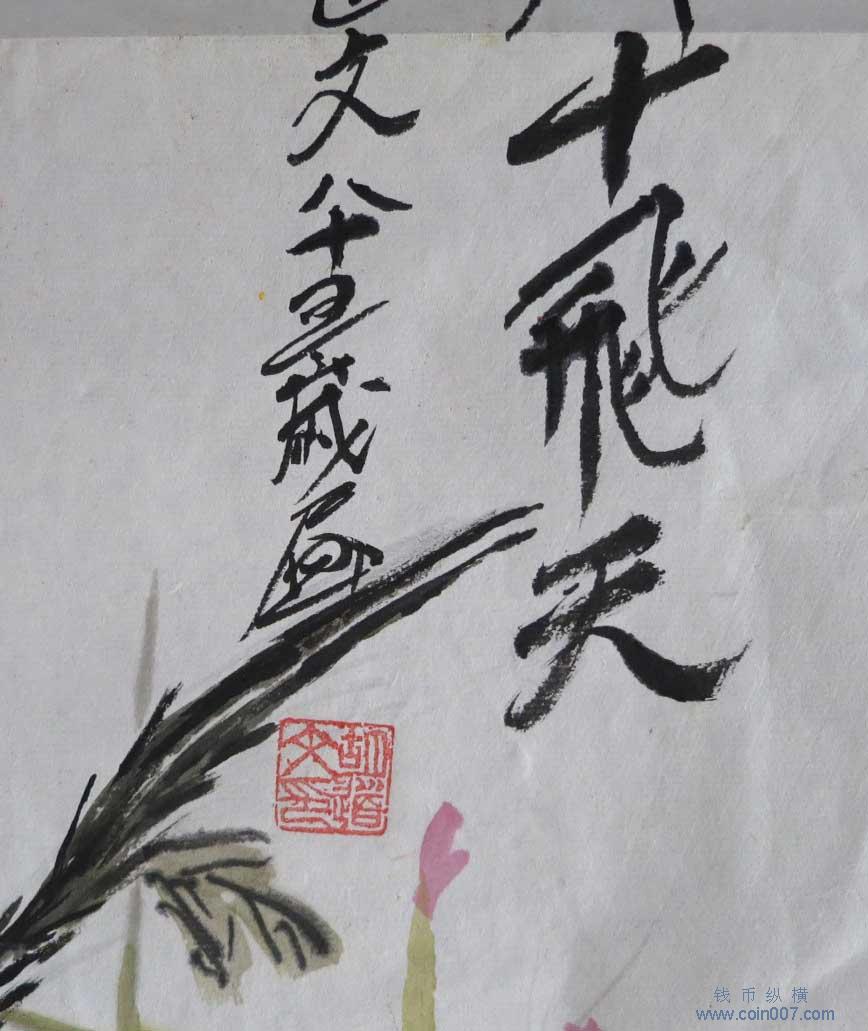 十飛天
文八十歲画
胡道
文印
钱币纵横
www.coin007.com